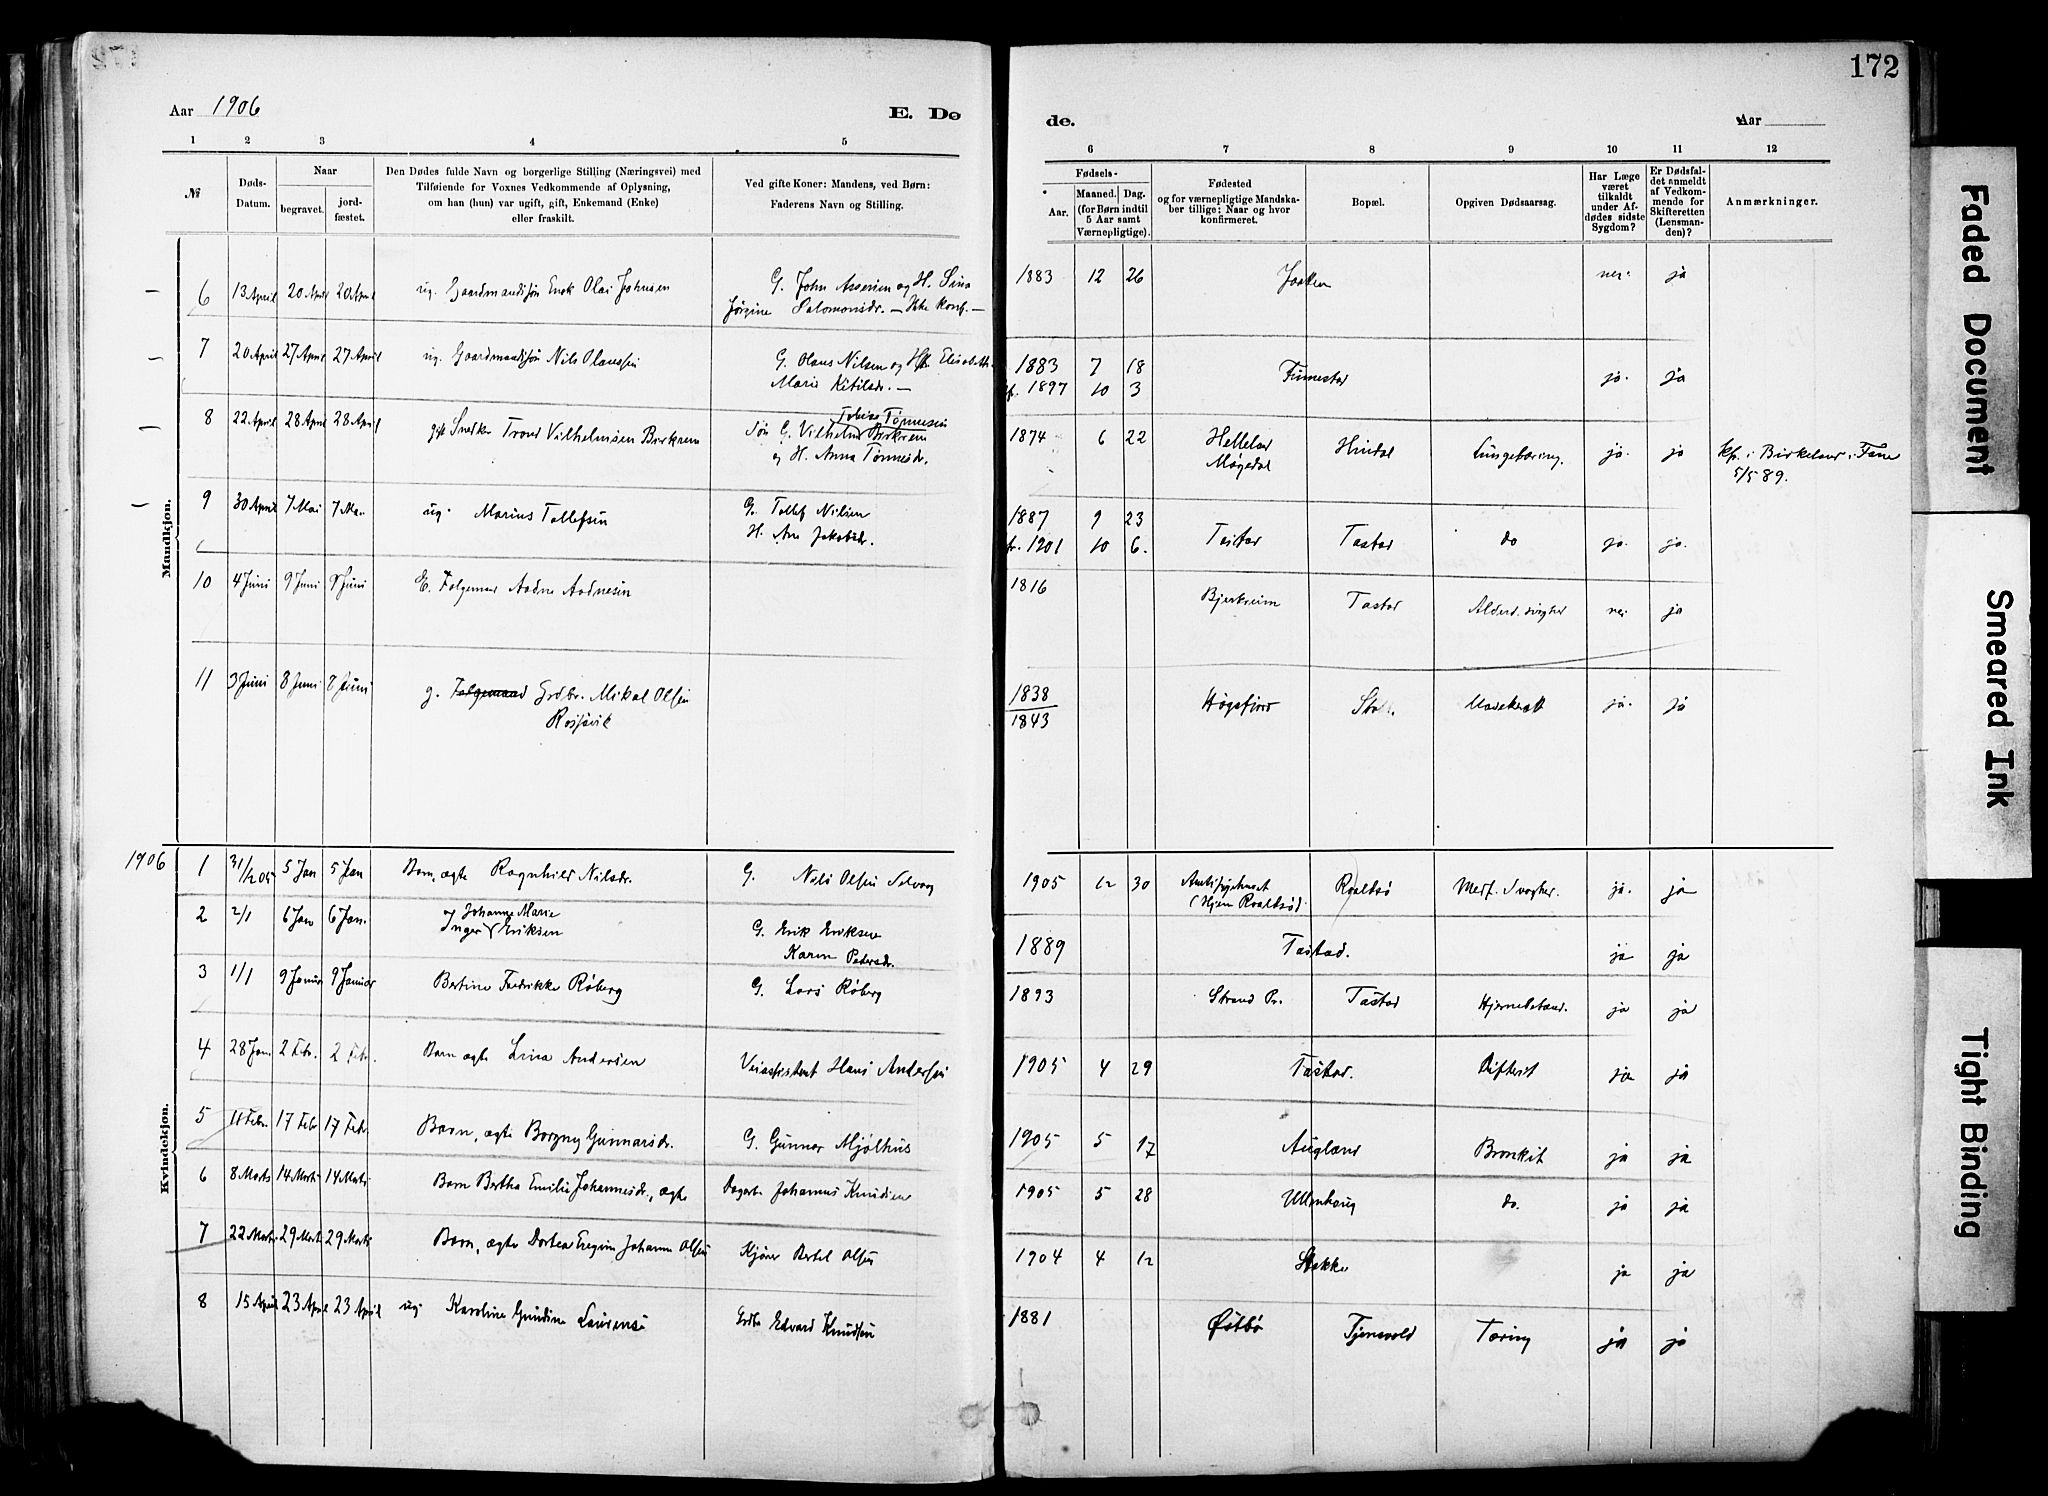 172
Aar 1906
E. Dø
de.
Aar
1 2 3 4 5 6 7 8 9 10 11 12
№
Døds-
Datum.
Naar
begravet.
jord-
fæstet.
Den Dødes fulde Navn og borgerlige Stilling (Næringsvei) med
Tilføiende for Voxnes Vedkommende af Oplysning,
om han (hun) var ugift, gift, Enkemand (Enke)
eller fraskilt.
Ved gifte Koner: Mandens, ved Børn:
Faderens Navn og Stilling.
Fødsels-
Aar.
Maaned.
Dag.
(for Børn indtil
5 Aar samt
Værnepligtige).
Fødested
og for værnepligtige Mandska-
ber tillige: Naar og hvor
konfirmeret.
Bopæl.
Opgiven Dødsaarsag.
Har Læge
været
tilkaldt
under Af-
dødes sidste
Sygdom?
Er Dødsfal-
det anmeldt
af Vedkom-
mende for
Skifteretten
(Lensman-
den)?
Anmærkninger.
Mandkjøn.
6 13 April 20 April 20 April ug. Gaardmandssøn Enok Olai Johnsen G. John Assersen og H. Sina 1883 12 26 ja
Jørgine Salomonsdr. — Ikke konf. —
7 20 April 27 April 27 April ug. Gaardmandssøn Nils Olaussen G. Olaus Nilsen og H. Elisabeth 1883 7 18 ja. ja
Marie Ketilsdr. — 1897 10 3
8 22 April 28 April 28 April gift Snedker Trond Vilhelmsen Birkrem Søn G. Vilhelm Tobias Tønnesen Birkrem 1874 6 22 Helleland Hindal Lungetæring. ja. ja kf. i Birkeland i Fane
og H. Anna Tønnesdr. Møgedal 5/5 89.
9 30 April 7 Mai 7 Mai ug. Marius Tollefsen G. Tollef Nilsen 1887 9 23 Tastad Tastad do ja. ja.
H. Ane Jakobsdr. 1901 10 6.
10 4 Juni 9 Juni 9 Juni E. Folgemand Aadne Aadnesen 1816 Bjerkreim Tastad nei ja
11 3 Juni 8 Juni 8 Juni g. Folgemand Grdbr. Mikal Olsen 1838 Høgsfjord ja. ja
Rossavik 1843
Kvindekjøn.
1906 1 31/12 05 5 Jan 5 Jan Barn, ægte Ragnhild Nilsdr. G. Nils Olsen 1905 12 30 Amtssygehuset ja. ja
(Hjem Roaldsø)
2 2/1 6 Jan 6 Jan. Inger Johanne Marie Eriksen G. Erik Eriksen 1889 Tastad. ja ja
Karen Pedersdr.
3 1/1 9 Januar 9 Januar Bertine Fredrikke Røberg G. Lars Røberg 1893 Strand Pr. Tastad ja ja
4 28 Jan. 2 Febr. 2 Febr. Barn ægte Lina Andersen Veiassistent Hans Andersen 1905 4 29 Tastad. Difterit ja ja
5 11 Febr. 17 Febr. 17 Febr. Barn, ægte Borgny Gunnarsdr. G. Gunnar Mjølhus 1905 5 17 Augland Bronkit ja ja
6 8 Marts 14 Marts 14 Marts Barn Bertha Emilie Johannesdr., ægte Dagarb. Johannes Knudsen 1905 5 28 Ullenhaug do. ja ja
7 22 Marts 29 Marts 29 Marts Barn, ægte Dortea Johanne Olsen Kjører Bertel Olsen 1904 4 12 Stokke ja ja
8 15 April 23 April 23 April ug. Karoline Gundine Grdbr. Edvard Knudsen 1881 Østbø Tjensvold Tæring ja ja
Faded Document
Smeared Ink
Tight Binding